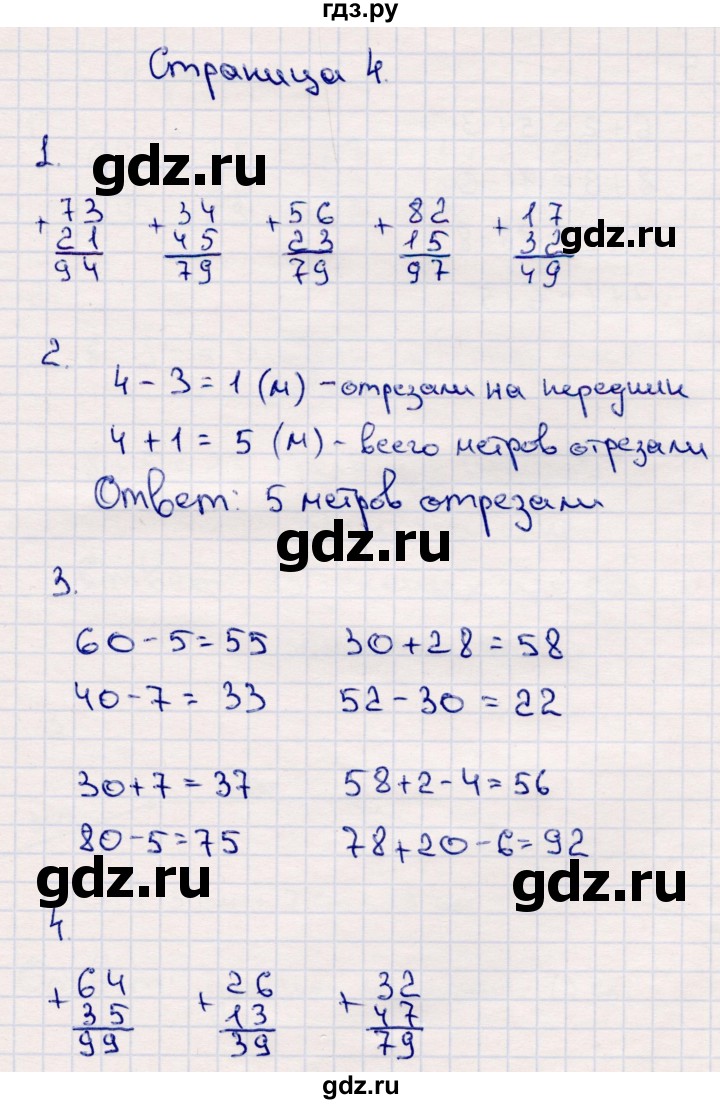 гдз.ру
Страница 4.
1.
gdz.ru
+73 +34 +56 +82 +17
21 45 23 15 32
gdz.ru
94 79 79 97 49
2.
4 - 3 = 1 (м) - отрезали на передник
4 + 1 = 5 (м) - всего метров отрезали
Ответ: 5 метров отрезали
gdz.ru
3.
60 - 5 = 55 30 + 28 = 58
40 - 7 = 33 52 - 30 = 22
30 + 7 = 37 58 + 2 - 4 = 56
80 - 5 = 75 78 + 20 - 6 = 92
gdz.ru gdz.ru
4.
+64 +26 +32
35 13 47
99 39 79
gdz.ru